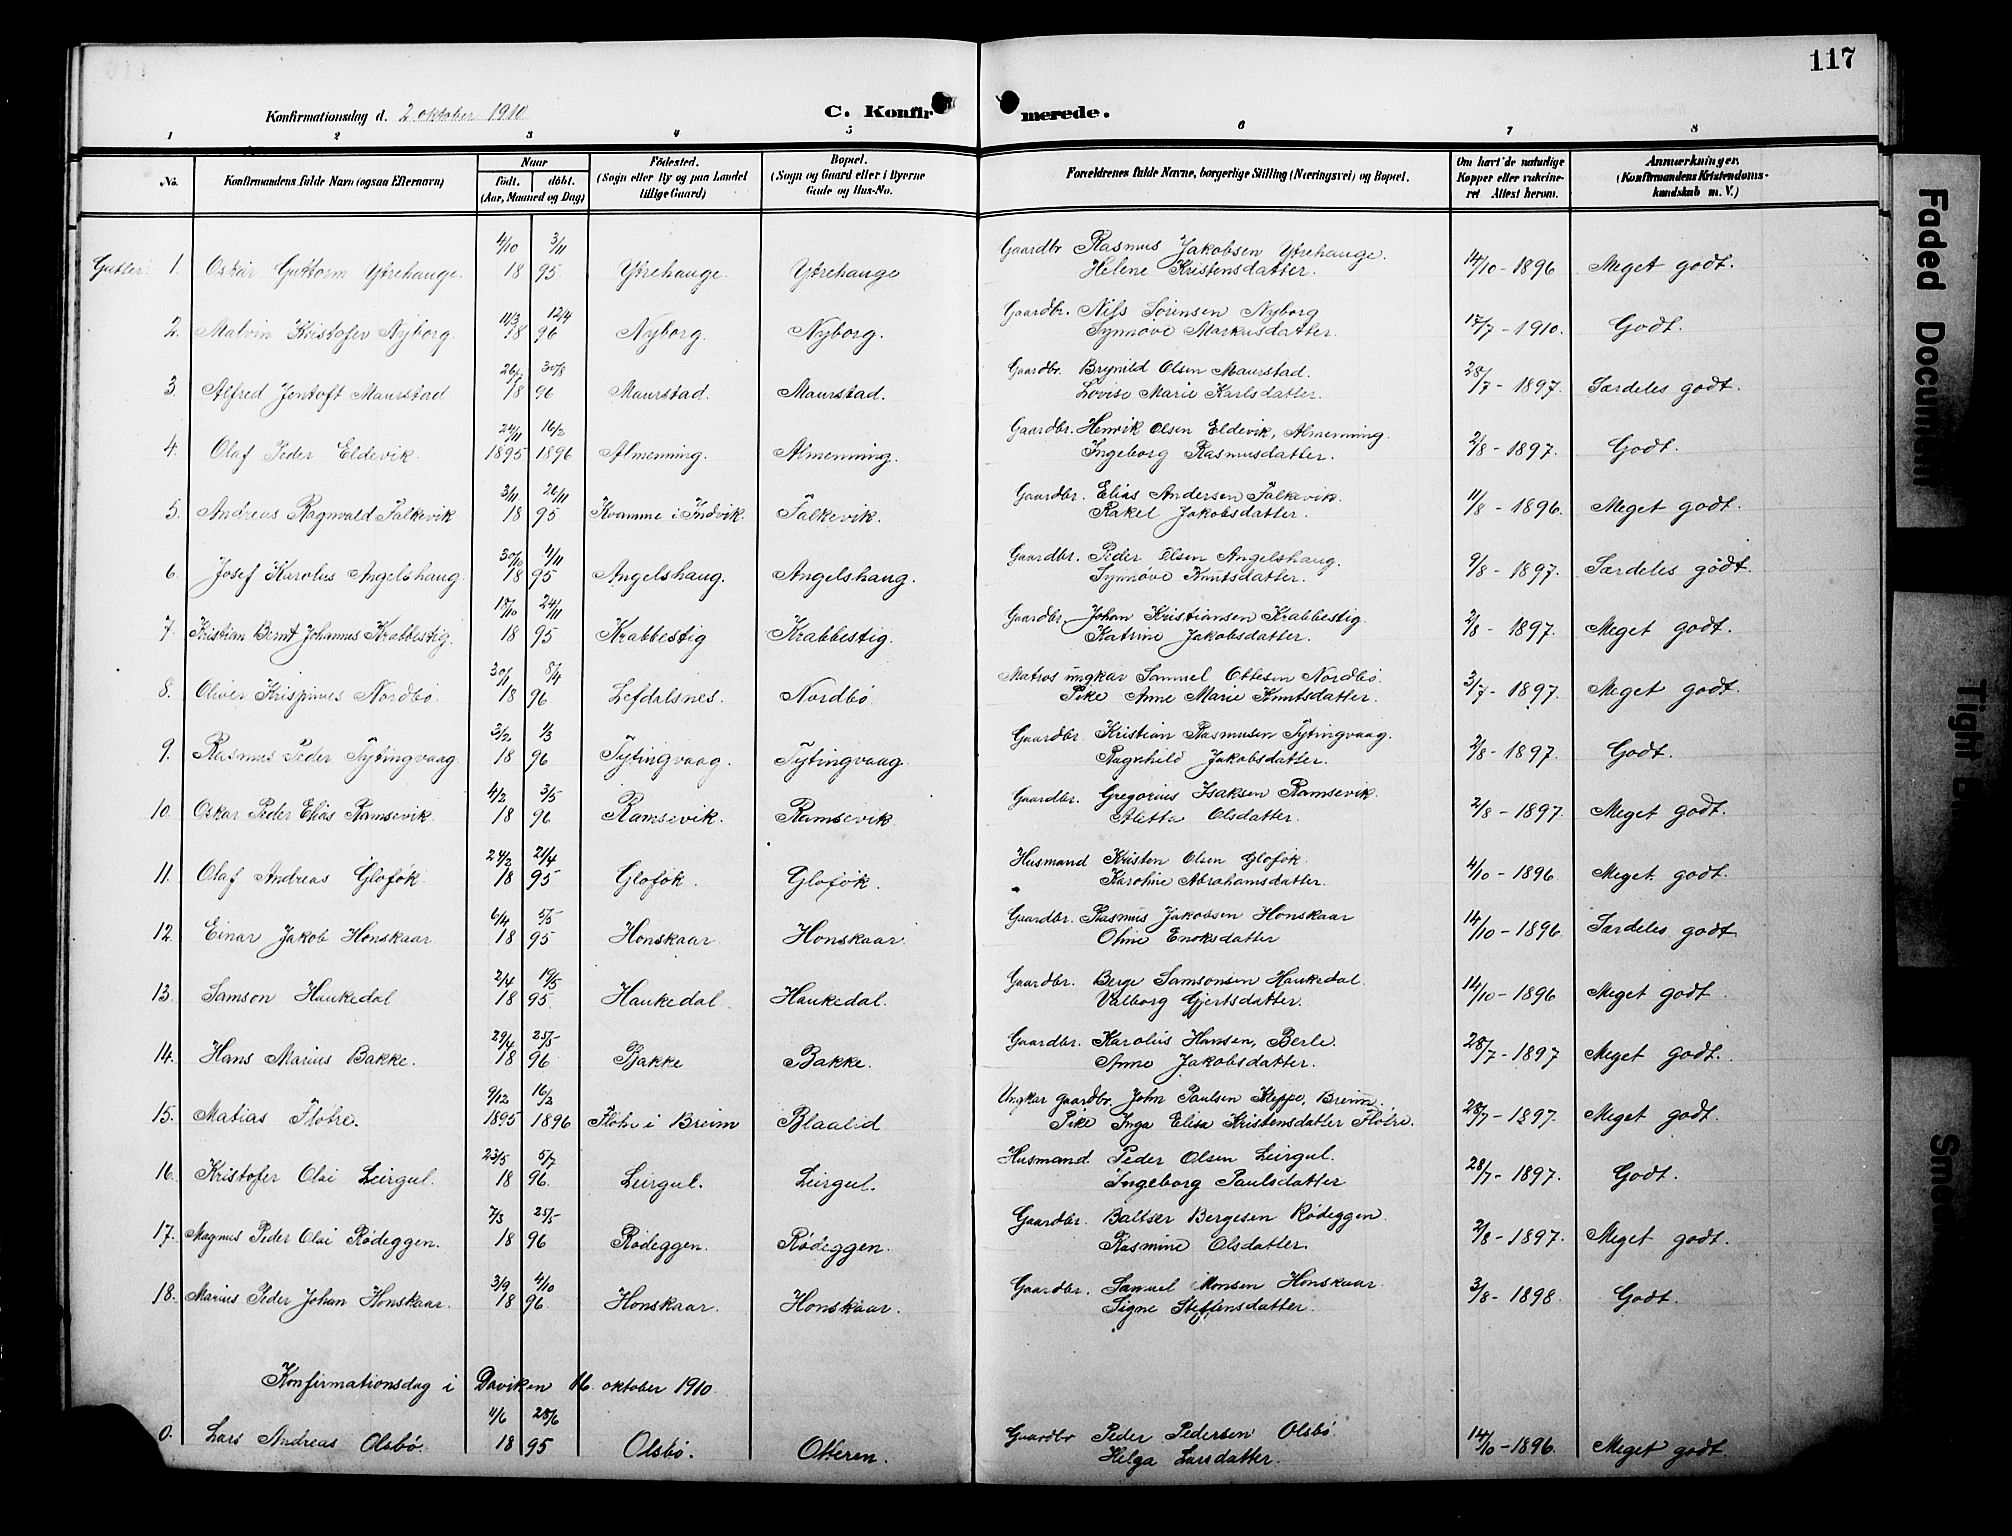 117
Konfirmationsdag d. 2 oktober 1910
C. Konfirmerede.
1 2 3 4 5 6 7 8
No.
Konfirmandens fulde Navn (ogsaa Efternavn)
Naar
født. døbt.
(Aar, Maaned og Dag)
Fødested.
(Sogn eller By og paa Landet
tillige Gaard)
Bopæl.
(Sogn og Gaard eller i Byerne
Gade og Hus-No.
Forældrenes fulde Navne, borgerlige Stilling (Næringsvei) og Bopæl.
Om havt de naturlige
Kopper eller vakcine-
ret Attest herom.
Anmærkninger.
(Konfirmandens Kristendoms-
kundskab m. V.)
4/10 3/11 Gaardbr Rasmus Jakobsen Ytrehauge.
Gutter. 1. Oskar Guttorm Ytrehauge. 18 95 Ytrehauge. Ytrehauge Helene Kristensdatter. 14/10 - 1896 Meget godt.
11/3 12/4 Gaardbr. Nils Sørensen Nyborg
2. Malvin Kristofer Nyborg. 18 96 Nyborg. Nyborg. Synnøve Markusdatter. 17/7 - 1910. Godt.
26/7 30/8 Gaardbr. Brynild Olsen Maurstad.
3. Alfred Jentoft Maurstad 18 96 Maurstad. Maurstad. Lovise Marie Karlsdatter. 28/7 - 1897. Særdeles godt.
24/11 16/2 Gaardbr. Henrik Olsen Eldevik, Almenning.
4. Olaf Peder Eldevik. 1895 1896 Almenning. Almenning. Ingeborg Rasmusdatter. 2/8 - 1897. Godt.
3/11 26/11 Gaardbr. Elias Andersen Falkevik.
5. Andreas Ragnvald Falkevik 18 95 Kvamme i Indvik. Falkevik. Rakel Jakobsdatter. 11/8 - 1896. Meget godt.
30/10 4/11 Gaardbr. Peder Olsen Angelshaug.
6. Josef Karolus Angelshaug. 18 95 Angelshaug. Angelshaug. Synnøve Knutsdatter. 9/8 - 1897. Særdeles godt.
18/10 24/11 Gaardbr. Johan Kristiansen Krabbestig.
7. Kristian Bernt Johannes Krabbestig. 18 95 Krabbestig Krabbestig. Katrine Jakobsdatter. 2/8 - 1897. Meget godt.
30/1 8/4 Matros ungkar Samuel Ottesen Nordbø.
8. Oliver Krispinus Nordbø. 18 96 Lefdalsnes. Nordbø Pike Anne Marie Knutsdatter. 3/7 - 1897. Meget godt.
3/2 1/3 Gaardbr Kristian Rasmusen Tytingvaag.
9. Rasmus Peder Tytingvaag. 18 96 Tytingvaag. Tytingvaag. Ragnhild Jakobsdatter. 2/8 - 1897. Godt.
4/2 3/5 Gaardbr. Gregorius Isaksen Ramsevik.
10. Oskar Peder Elias Ramsevik. 18 96 Ramsevik. Ramsevik Aletta Olsdatter. 2/8 - 1897. Meget godt.
24/2 21/4 Husmand Kristen Olsen Gloføk.
11. Olaf Andreas Gloføk. 18 95 Gloføk. Gloføk. Karoline Abrahamsdatter. 4/10 - 1896. Meget godt.
6/4 5/5 Gaardbr. Rasmus Jakobsen Honskaar
12. Einar Jakob Honskaar. 18 95 Honskaar. Honskaar. Oline Enoksdatter 14/10 - 1896. Særdeles godt
2/4 19/5 Gaardbr. Berge Samsonsen Haukedal.
13. Samson Haukedal 18 95. Haukedal. Haukedal. Valborg Gjertsdatter. 14/10 - 1896 Meget godt.
29/4 25/5 Gaardbr. Karolius Hansen, Berle.
14. Hans Marius Bakke. 18 96 Bakke Bakke. Anne Jakobsdatter. 28/7 - 1897 Meget godt.
9/12 16/2 Ungkar gaardbr. John Paulsen Kleppe, Breim.
15. Matias Fløtre. 1895 1896 Fløtre i Breim Blaalid Pike Inga Elisa Kristensdatter Fløtre. 28/7 - 1897. Meget godt.
23/5 5/7 Husmand. Peder Olsen Leirgul.
16. Kristofer Olai Leirgul. 18 96. Leirgul. Leirgul. Ingeborg Paulsdatter 28/7 - 1897. Godt.
7/3 25/5 Gaardbr. Baltser Bergesen Rødeggen.
17. Magnus Peder Olai Rødeggen. 18 96 Rødeggen. Rødeggen. Rasmine Olsdatter. 2/8 - 1897. Meget godt.
3/9 4/10 Gaardbr. Samuel Monsen Honskaar.
18. Marius Peder Johan Honskaar. 18 96. Honskaar. Honskaar. Signe Steffensdatter. 3/8 - 1898. Godt.
Konfirmationsdag i Daviken 16. oktober 1910.
4/6 28/6 Gaardbr Peder Pedersen Olsbø
0. Lars Andreas Olsbø. 18 95 Olsbø. Otteren. Helga Larsdatter. 14/10 - 1896. Meget godt.
Faded Document
Tight B